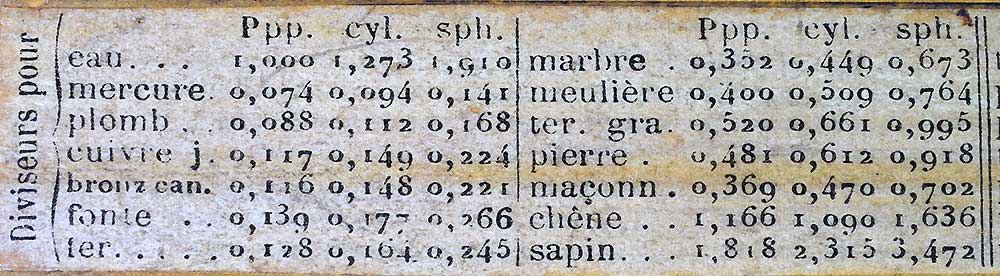 Diviseurs pour
Ppp. cyl. sph. Ppp. cyl. sph.
eau. . . 1,000 1,273 1,910 marbre . 0,352 0,449 0,673
mercure. 0,074 0,094 0,141 meulière 0,400 0,509 0,764
plomb . . 0,088 0,112 0,168 ter. gra. 0,520 0,661 0,995
cuivre j. 0,117 0,149 0,224 pierre . 0,481 0,612 0,918
bronz can. 0,116 0,148 0,221 maçonn . 0,369 0,470 0,702
fonte . . 0,139 0,177 0,266 chêne . 1,166 1,090 1,636
fer. . . . . 0,128 0,164 0,245 sapin. . . 1,818 2,315 3,472